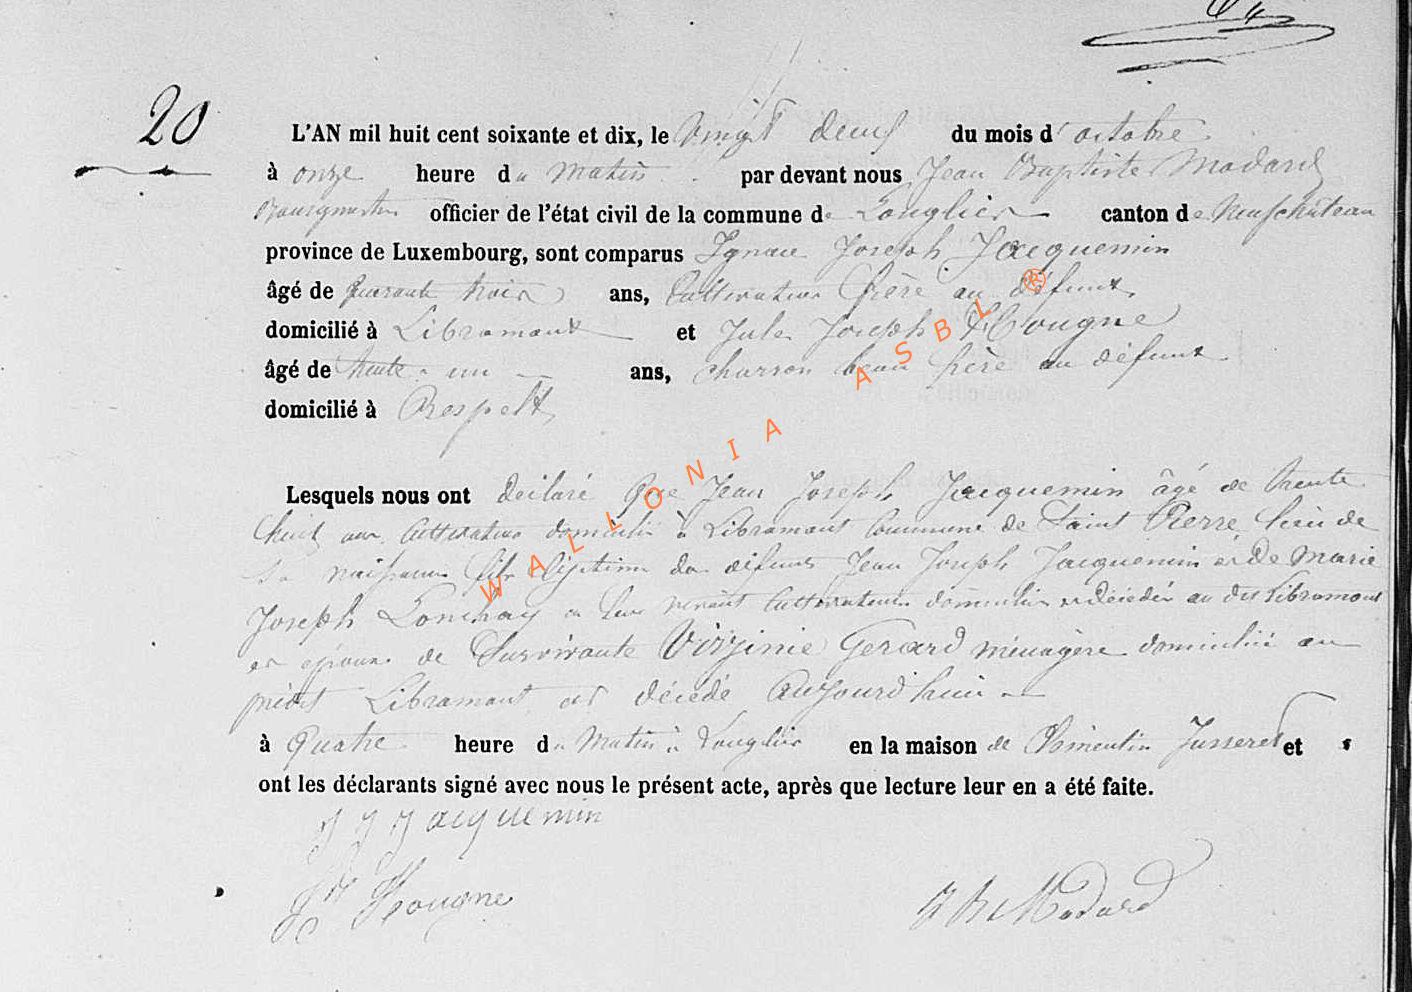 20
L'AN mil huit cent soixante et dix, le Vingt deux du mois d'octobre
à onze heure du Matin par devant nous Jean Baptiste Modard
Bourgmestre officier de l'état civil de la commune de Longlier canton de Neufchâteau
province de Luxembourg, sont comparus Ignace Joseph Jacquemin
âgé de quarante trois ans, Cultivateur frère au défunt
domicilié à Libramont et Jule Joseph Hougne
âgé de trente un ans, charron beau frère au défunt
domicilié à Respelt
Lesquels nous ont déclaré Que Jean Joseph Jacquemin âgé de trente
huit ans Cultivateur domicilié à Libramont Commune de Saint Pierre lieu de
Sa naissance fils légitime de défunts Jean Joseph Jacquemin et De Marie
Joseph Lonchay en leur vivant Cultivateurs domiciliés et décédés au dit Libramont
et époux de Survivante Virginie Gerard ménagère domiciliée au
prédit Libramont est décédé Aujourd'hui
à Quatre heure du Matin à Longlier en la maison de Clementin Jusseret et
ont les déclarants signé avec nous le présent acte, après que lecture leur en a été faite.
J J Jacquemin
Hougne
J B Modard
WALLONIA ASBL ®